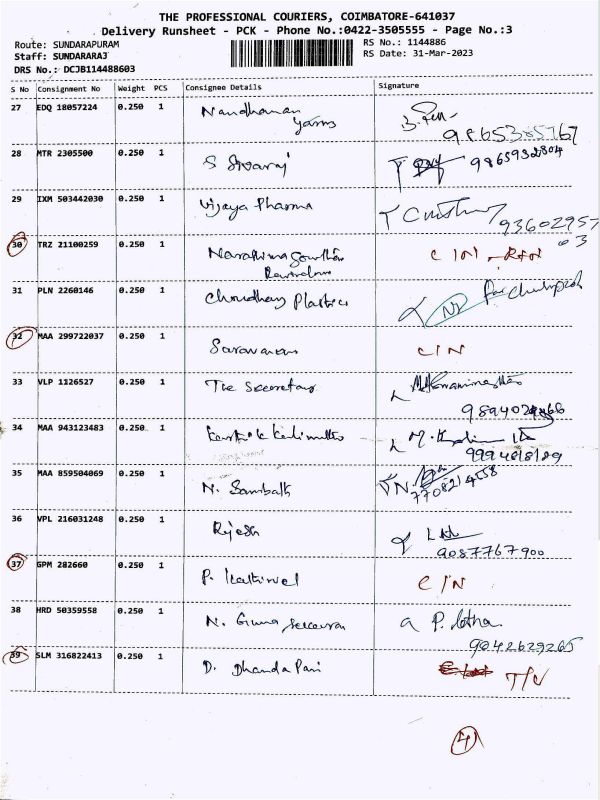 THE PROFESSIONAL COURIERS, COIMBATORE-641037
Delivery Runsheet - PCK - Phone No.:0422-3505555 - Page No.:3
Route: SUNDARAPURAM
RS No.: 1144886
Staff: SUNDARARAJ
RS Date: 31-Mar-2023
DRS No.: DCJB114488603
S No Consignment No Weight PCS Consignee Details Signature
27 EDQ 18057224 0.250 1 Nandhanan
Yarns
28 MTR 2305500 0.250 1 S Sivaraj 9865932804
29 IXM 503442030 0.250 1 Vijaya Pharma
93602957
03
30 TRZ 21100259 0.250 1 C/N
31 PLN 2260146 0.250 1 Choudhary Plastics
32 MAA 299722037 0.250 1 Saravanan C/N
33 VLP 1126527 0.250 1 The Secretary
34 MAA 943123483 0.250 1
35 MAA 859504069 0.250 1 N. Sambath N.
7708214558
36 VPL 216031248 0.250 1 Rajesh
9087767900
37 GPM 282660 0.250 1 P. Kathirvel C/N
38 HRD 50359558 0.250 1 N. Guna P. Latha
9042629265
39 SLM 316822413 0.250 1 D. DhandaPani
4